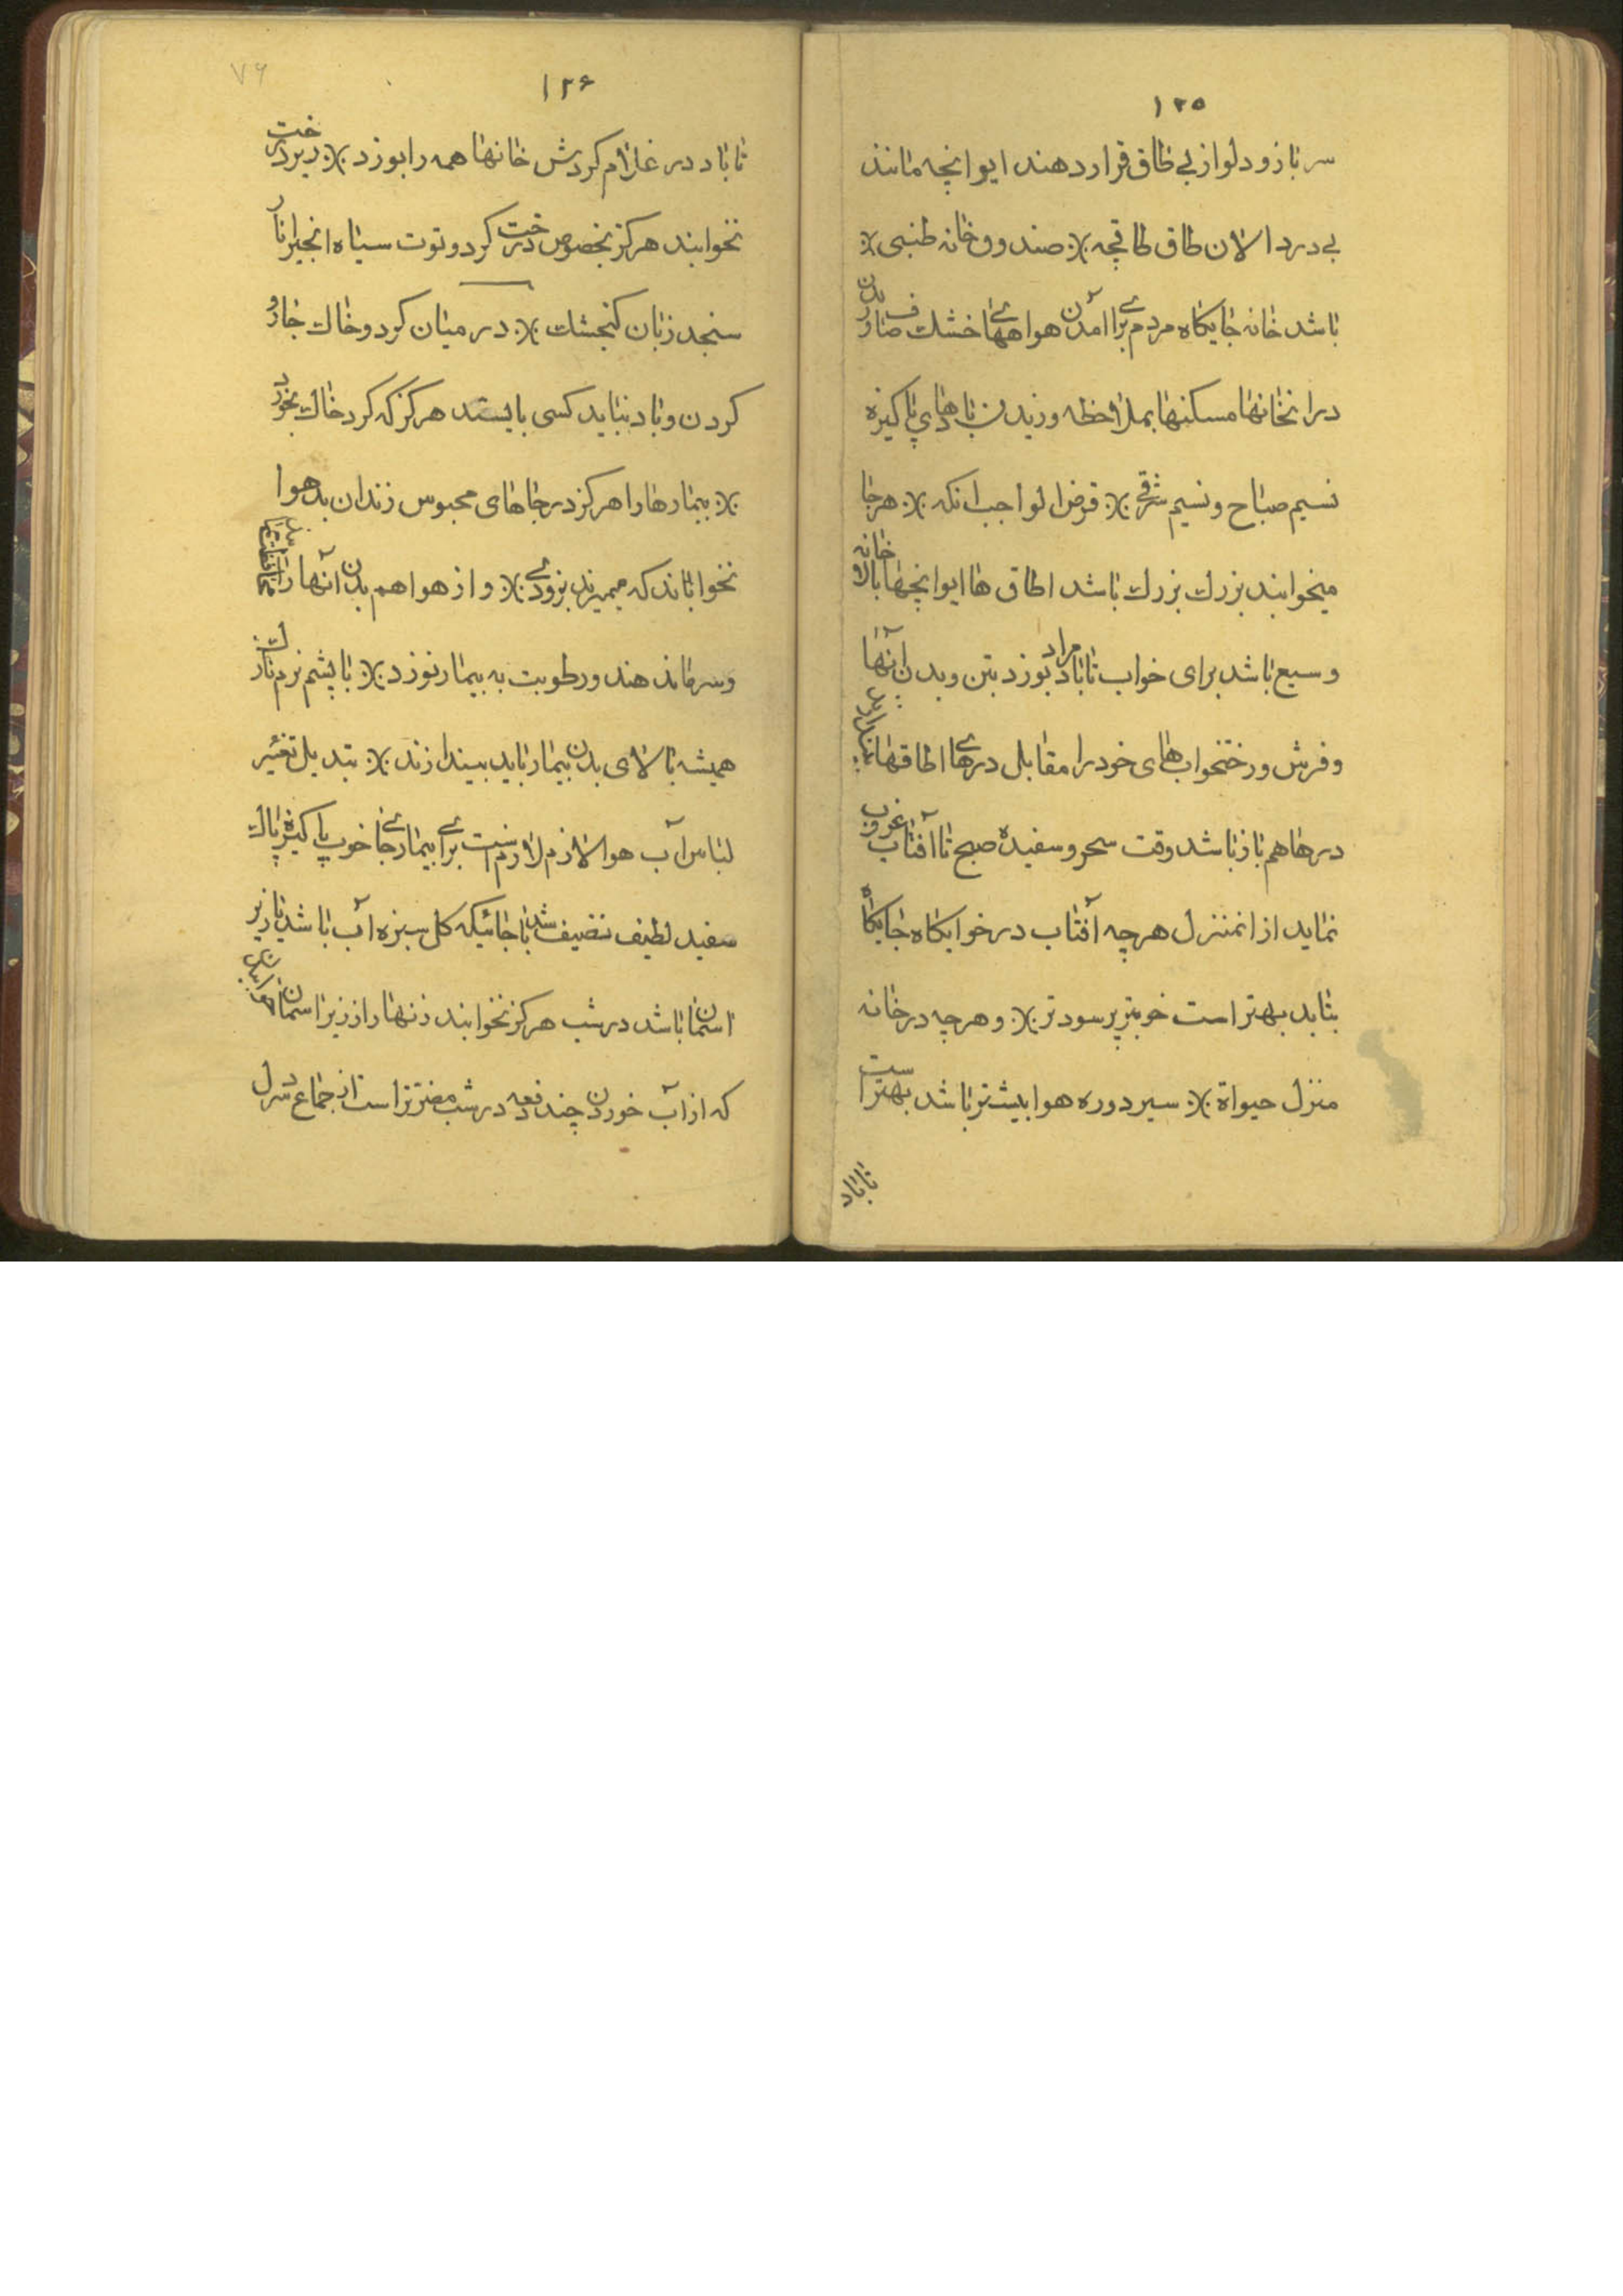 ۱۲۵
سر بازو دلواز بی طاق قرار دهند ایوانچه مانند
بی در دالان طاق طاقچه ܀ صندوق خانه طنبی ܀
باشد خانه جایکاه مردم برای آمدن هواههای خشک صاف در بدن
در انخانها مسکنها بملاحظه وزیدن بادهای پاکیزه
نسیم صباح و نسیم شرقی ܀ فرض الواجب انکه ܀ هر جا
میخوابند بزرك بزرك باشد اطاق ها ایوانچها بالاخانه
وسیع باشد برای خواب تا باد مراد بوزد بتن و بدن آنها
و فرش و رختخواب های خود را مقابل درهای اطاقها بیندازید
درها هم باز باشد وقت سحر و سفیده صبح تا آفتاب غروب
نماید از انمنزل هرچه آفتاب در خوابکاه جایکاه
بتابد بهتر است خوبتر پر سودتر ܀ و هرچه در خانه
منزل حیواة ܀ سیر دوره هوا بیشتر باشد بهتر است
تا باد
۷۶
۱۲۶
تا باد در غلام کردش خانها همه را بوزد ܀ زیر درخت
نخوابند هرکز بخصوص درخت کردو توت سیاه انجیر انار
سنجد زبان کنجشك ܀ در میان کرد و خاك جارو
کردن و باد نباید کسی بایستد هرکز که کرد خاك بخورد
܀ بیمارها را هرکز در جاهای محبوس زندان بد هوا
نخوابانند که میمیرند بزودی ܀ و از هوا هم بدن آنها را
و سرما ندهند و رطوبت به بیمار نوزد ܀ با پشم نرم نازك
همیشه بالای بدن بیمار باید بیندازند ܀ تبدیل تغئیر
لباس آب هوا لازم لازم است برای بیماری جا خوب پاکیزه پاك
سفید لطیف نضیف باشد جائیکه کل سبزه آب باشد یا زیر
اسمان باشد در شب هرکز نخوابند زنها را از زیر اسمان
که از آب خوردن چند دفعه در شب مضرتر است از جماع در سرل